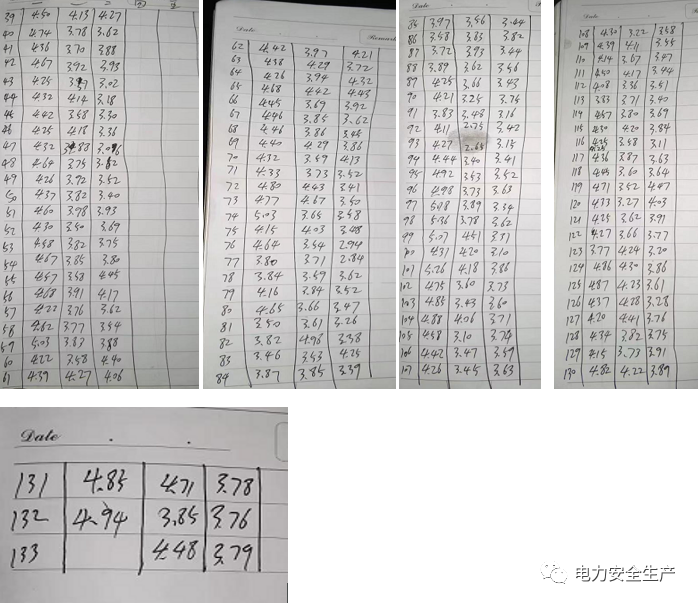 39 4.50 4.13 4.27
40 4.74 3.78 3.62
41 4.36 3.70 3.88
42 4.67 3.92 3.93
43 4.25 3.02
44 4.32 4.14 3.18
45 4.42 3.58 3.30
46 4.25 4.18 3.36
47 4.32
48 4.64 3.75 3.62
49 4.26 3.92 3.52
50 4.37 3.82 3.40
51 4.60 3.78 3.93
52 4.30 3.50 3.69
53 4.58 3.82 3.75
54 4.67 3.85 3.80
55 4.57 3.58 4.45
56 4.68 3.91 4.17
57 4.22 3.76 3.62
58 4.62 3.77 3.54
59 5.03 3.83 3.88
60 4.22 3.58 4.40
61 4.39 4.27 4.06
Date
Remark
62 4.42 3.97 4.21
63 4.38 4.29 3.72
64 4.26 3.94 4.32
65 4.68 4.42 4.43
66 4.45 3.69 3.92
67 4.46 3.85 3.62
68 4.46 3.86 3.45
69 4.40 4.29 3.86
70 4.32 3.59 4.13
71 4.33 3.73 3.52
72 4.80 4.43 3.41
73 4.77 4.67 3.50
74 5.03 3.65 3.58
75 4.15 4.03 3.48
76 4.64 3.54 2.94
77 3.80 3.71 2.84
78 3.84 3.59 3.62
79 4.16 3.84 3.52
80 4.65 3.66 3.47
81 3.50 3.61 3.26
82 3.82 4.96 3.38
83 3.46 3.53 4.25
84 3.87 3.85 3.39
Date
85 3.97 3.56 3.44
86 3.58 3.83 3.82
87 3.72 3.93 3.44
88 3.89 3.62 3.56
89 4.25 3.66 3.43
90 4.21 3.25 3.75
91 3.83 3.48 3.16
92 4.11 2.75 3.42
93 4.27 2.65 3.15
94 4.44 3.40 3.41
95 4.92 3.53 3.52
96 4.98 3.73 3.63
97 5.18 3.89 3.34
98 5.36 3.78 3.62
99 5.07 4.51 3.31
100 4.31 4.20 3.10
101 5.26 4.18 3.86
102 4.75 3.60 3.73
103 4.85 3.43 3.60
104 4.88 4.06 3.71
105 4.58 3.10 3.74
106 4.42 3.47 3.59
107 4.26 3.45 3.63
Date
108 4.30 3.22 3.58
109 4.39 4.11 3.55
110 4.14 3.67 3.47
111 4.50 4.17 3.44
112 4.08 3.36 3.51
113 3.83 3.71 3.40
114 4.57 3.80 3.69
115 4.30 4.20 3.84
116 4.25 3.58 3.11
117 4.36 3.87 3.63
118 4.45 3.60 3.64
119 4.71 3.52 4.07
120 4.33 3.27 4.03
121 4.25 3.62 3.91
122 4.27 3.66 3.77
123 3.77 4.24 3.20
124 4.86 4.30 3.86
125 4.87 4.23 3.61
126 4.37 4.28 3.28
127 4.20 4.41 3.76
128 4.34 3.82 3.75
129 4.15 3.73 3.91
130 4.82 4.22 3.89
Date
131 4.85 4.71 3.78
132 4.94 3.85 3.76
133 4.48 3.79
电力安全生产